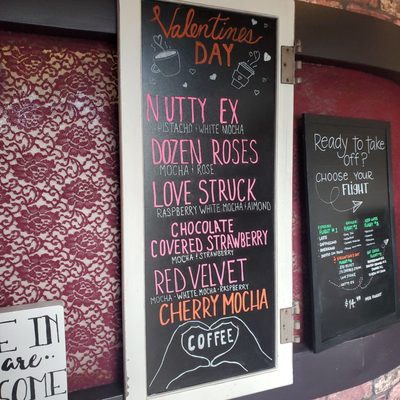 Valentines
DAY
NUTTY EX
PISTACHIO + WHITE MOCHA
DOZEN ROSES
MOCHA + ROSE
LOVE STRUCK
RASPBERRY WHITE MOCHA + ALMOND
CHOCOLATE
COVERED STRAWBERRY
MOCHA + STRAWBERRY
RED VELVET
MOCHA - WHITE MOCHA - RASPBERRY
CHERRY MOCHA
COFFEE
READY TO TAKE
OFF?
CHOOSE YOUR
FLIGHT
E IN
are..
SOME